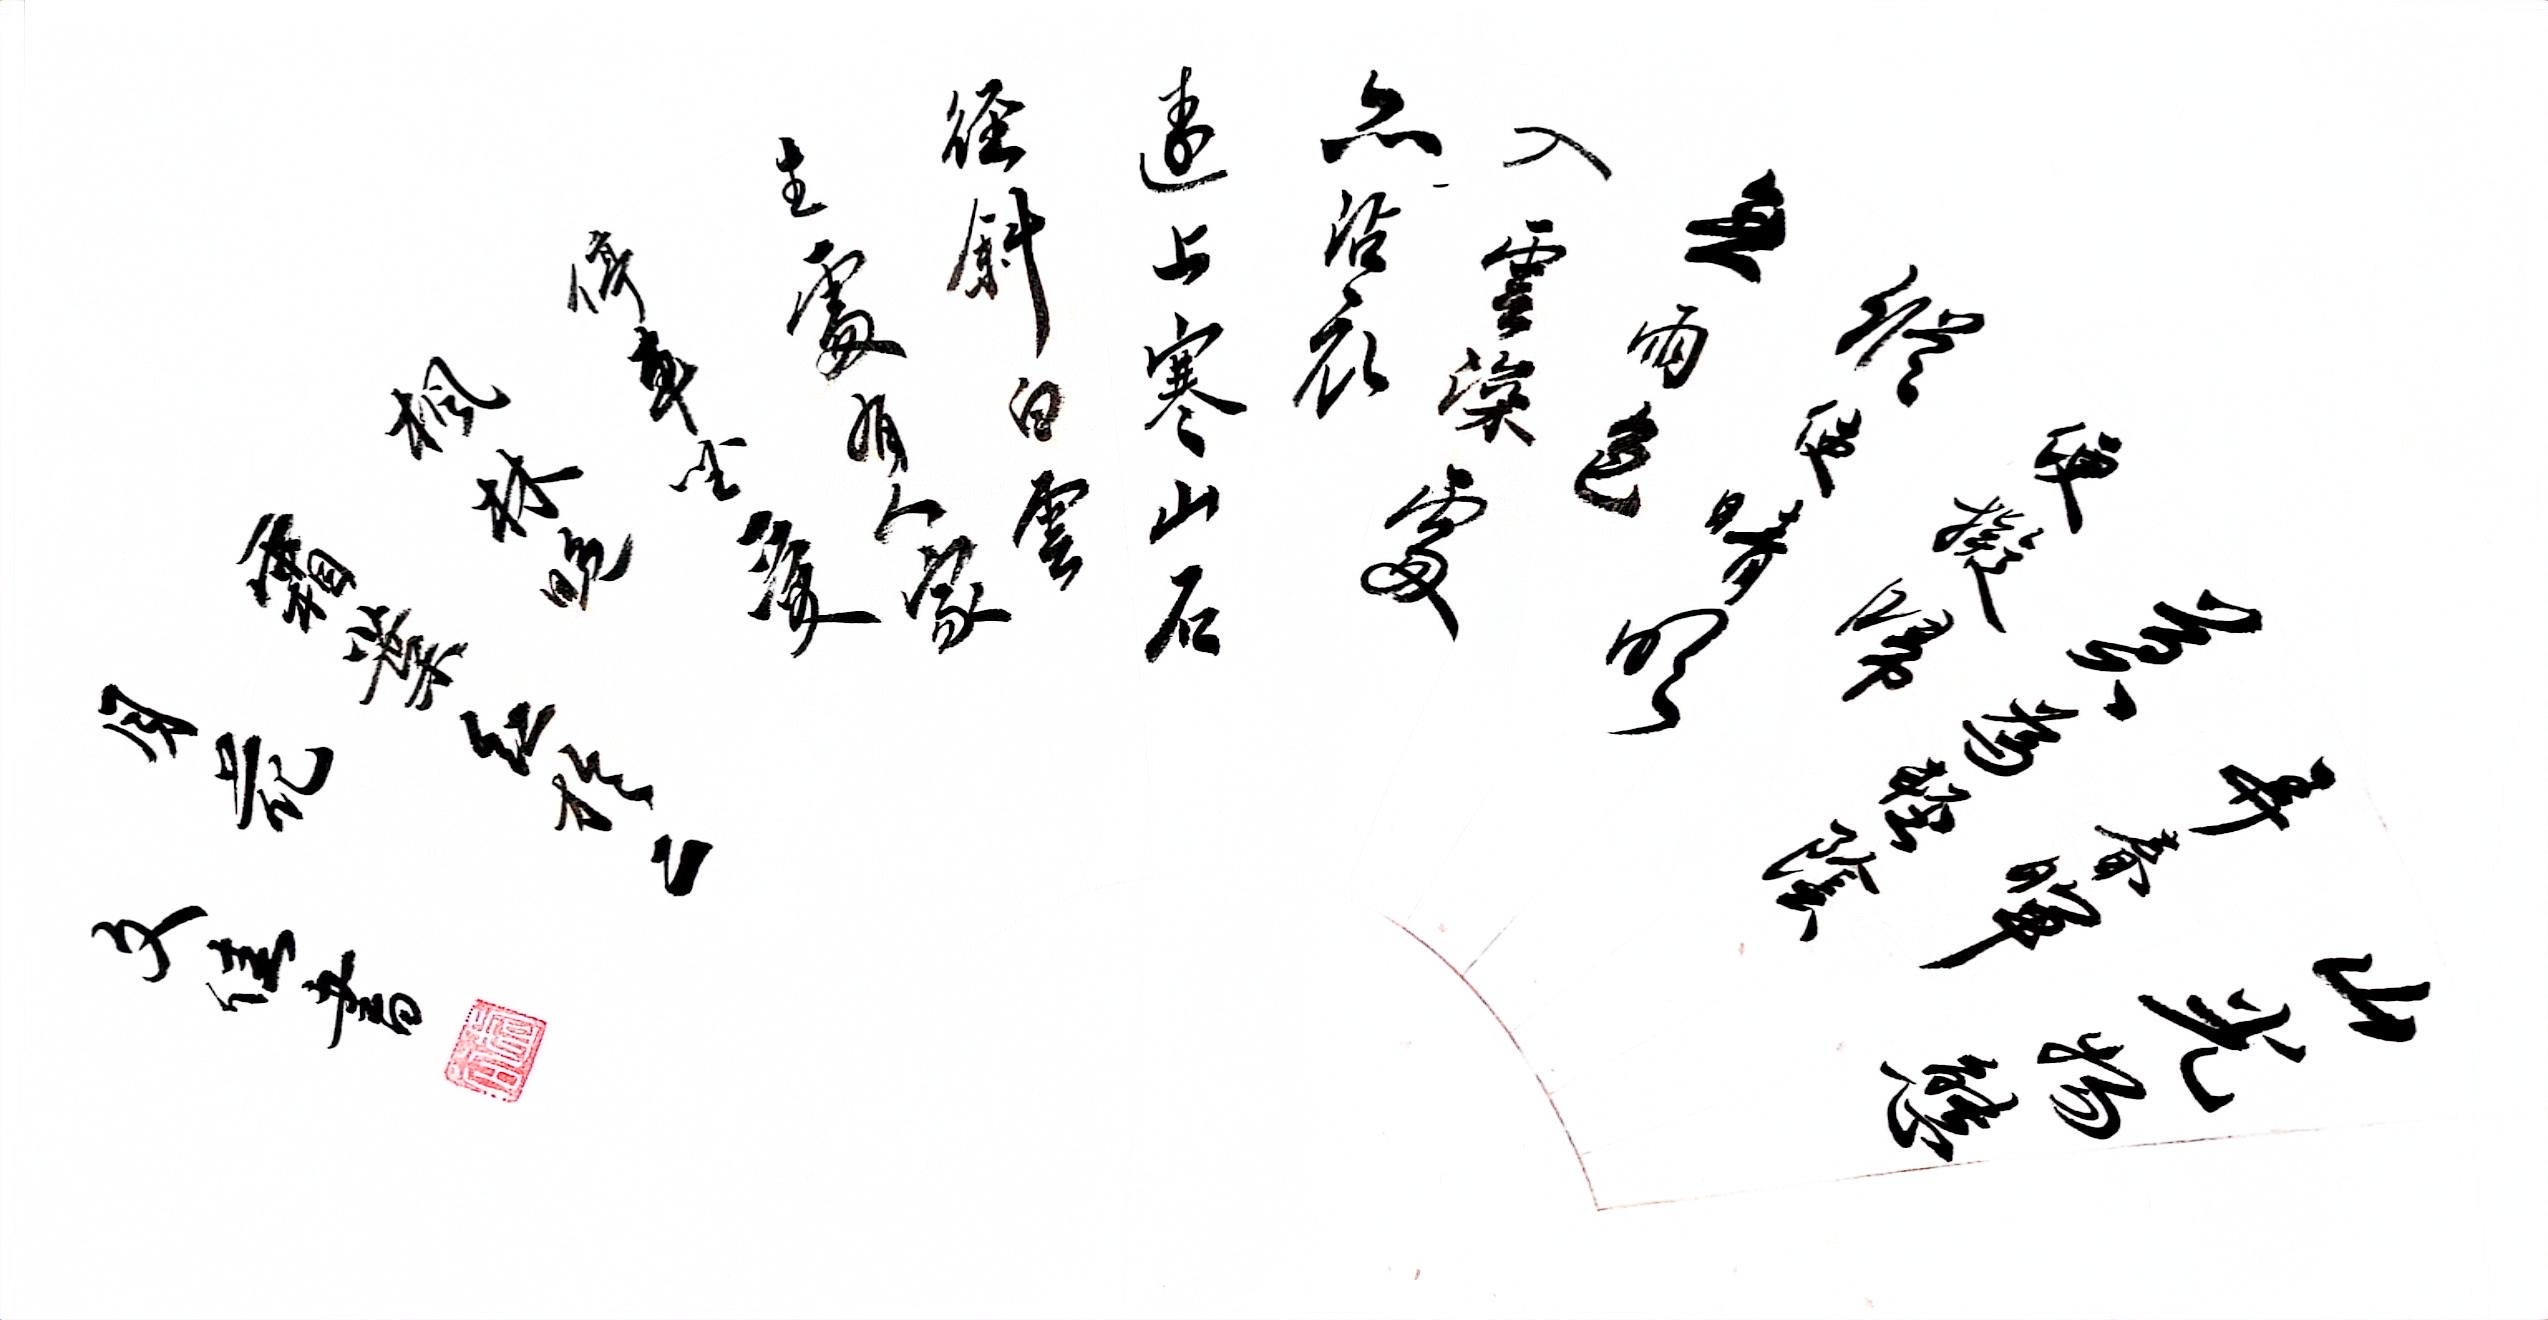 山光物態
弄春暉
莫為輕陰
便擬歸
縱使晴明
無雨色
入雲深處
亦沾衣
遠上寒山石
徑斜白雲
生處有人家
停車坐愛
楓林晚
霜葉紅於二
月花
文書